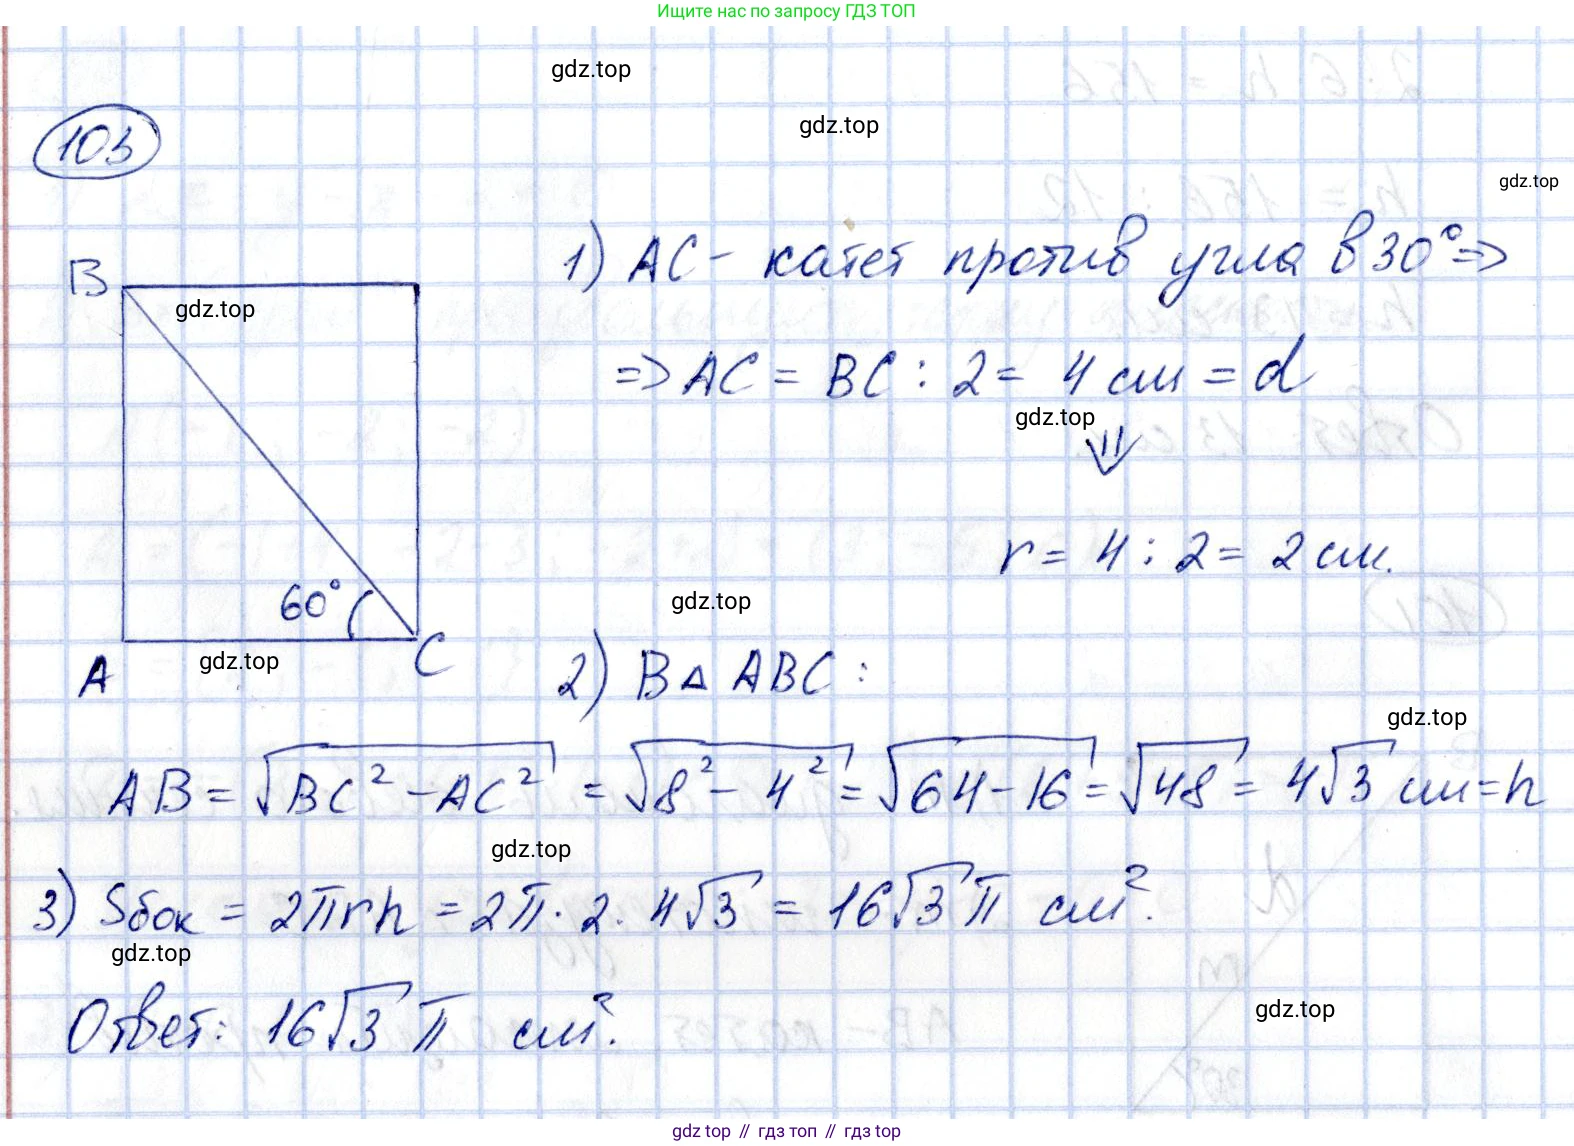 Ищите нас по запросу ГДЗ ТОП
gdz.top
gdz.top
103
gdz.top
1) AC - катет против угла в 30° =>
B
gdz.top
=> AC = BC : 2 = 4 см = d
gdz.top
⇓
r = 4 : 2 = 2 см.
60°
gdz.top
A
gdz.top
C
2) В △ ABC :
gdz.top
AB = √(BC² - AC²) = √(8² - 4²) = √(64 - 16) = √48 = 4√3 см = h
gdz.top
3) Sбок = 2πrh = 2π · 2 · 4√3 = 16√3 π см².
gdz.top
Ответ: 16√3 π см².
gdz.top
gdz top // гдз топ // гдз top